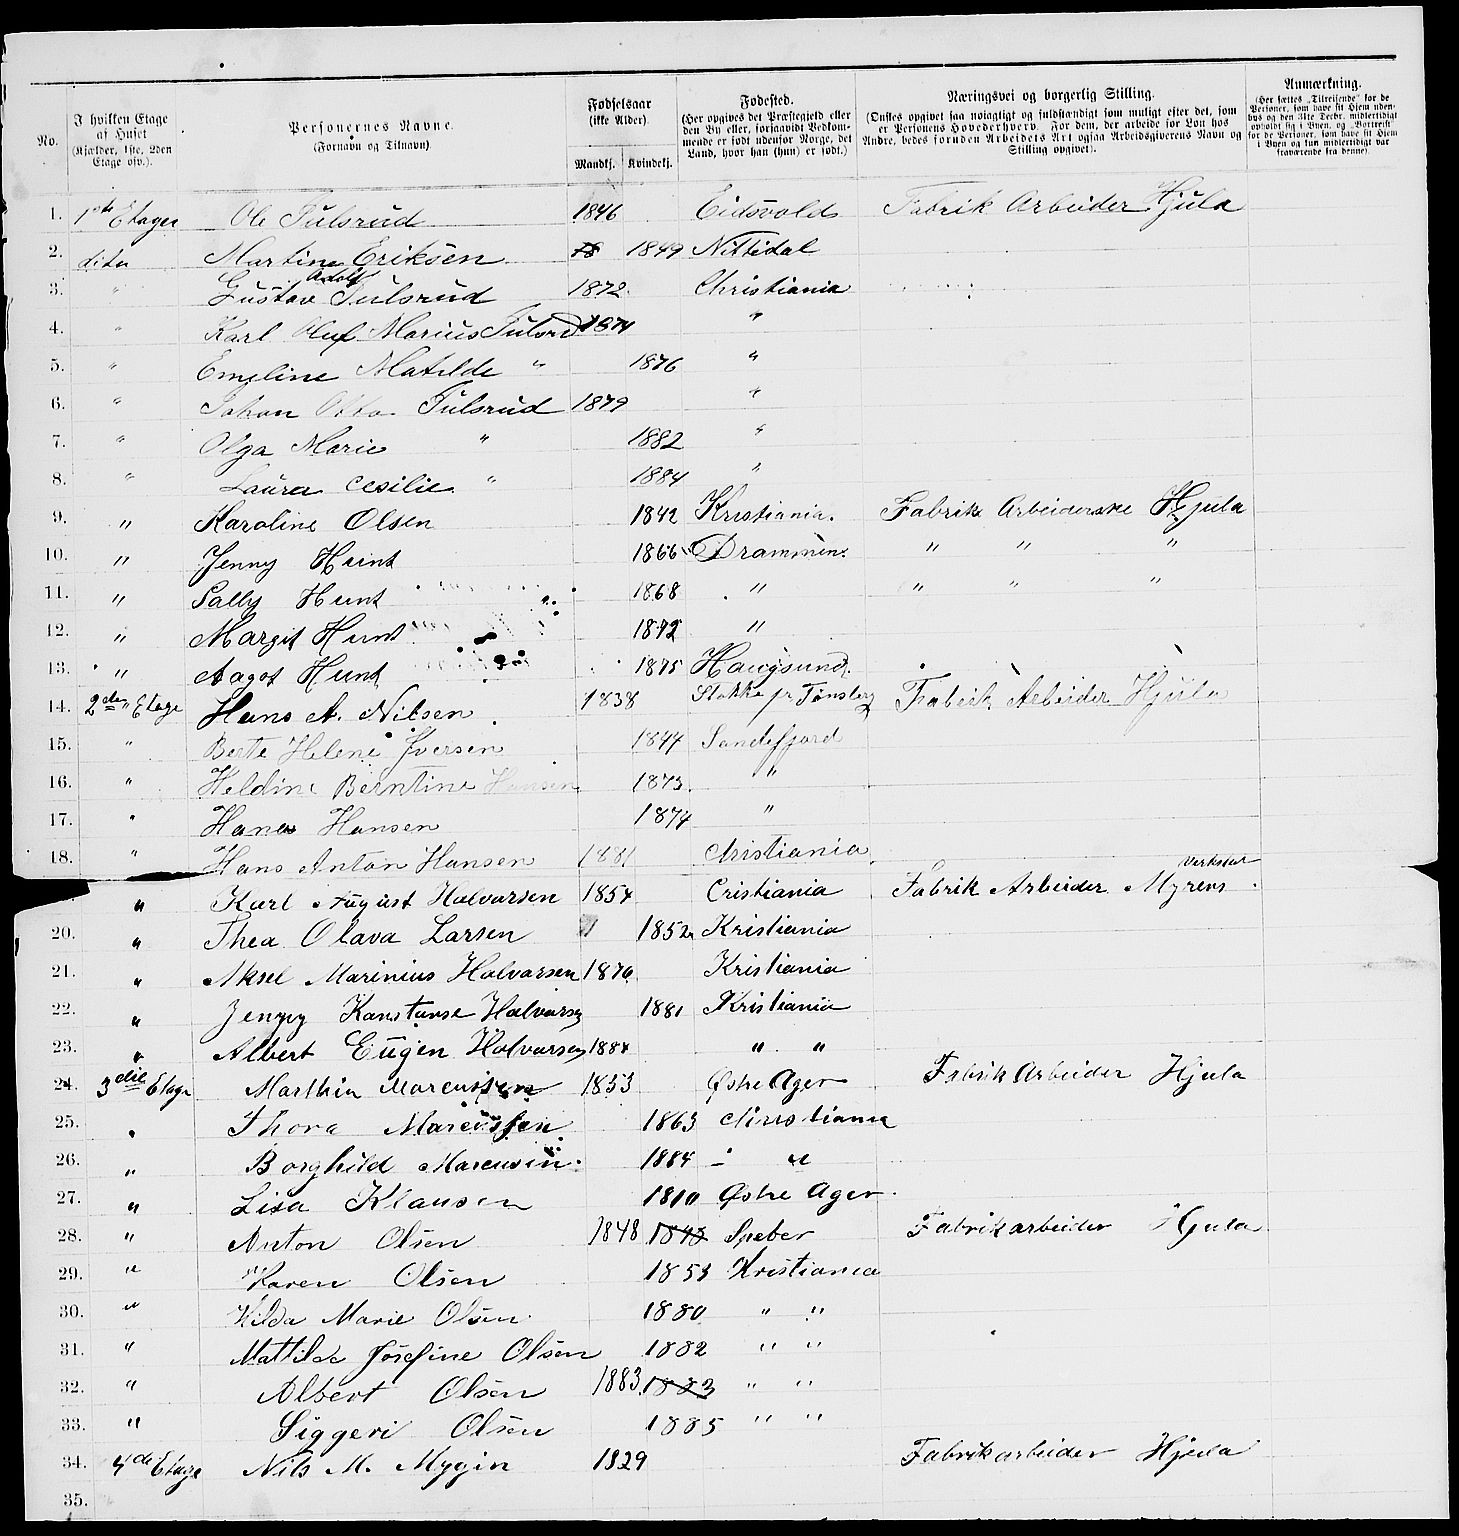 No. I hvilken Etage af Huset (Kjælder, 1ste, 2den Etage osv.). Personernes Navne. (Fornavn og Tilnavn) Fødselsaar (ikke Alder). Mandkj. Kvindekj. Fødested. (Her opgives det Præstegjeld eller den By eller, forsaavidt Vedkommende er født udenfor Norge, det Land, hvor han (hun) er født.) Næringsvei og borgerlig Stilling. (Ønstes opgivet saa nøiagtigt og fuldstændigt som muligt efter det, som er Personens Hovederhverv. For dem, der arbeide for Løn hos Andre, bedes foruden Arbeidets Art ogsaa Arbeidsgiverens Navn og Stilling opgivet). Anmærkning. (Her sættes „Tilreisende" for de Personer, som have sit Hjem udenbys og den 31te Decbr. midlertidigt opholdt sig i Byen, og „Bortreist" for de Personer, som have sit Hjem i Byen og kun midlertidigt var fraværende fra denne).
1. 1ste Etager Ole Tulsrud 1846 Eidsvolds Fabrik Arbeider Hjula
2. dito Martine Eriksen 1849 Nittedal
3. " Gustav Adolf Tulsrud 1872 Christiania
4. " Karl Oluf Marius Tulsrud 1874 "
5. " Emeline Matilde " 1876 "
6. " Johan Otto Tulsrud 1879 "
7. " Olga Marie " 1882 "
8. " Laura Cesilie " 1884 "
9. " Karoline Olsen 1842 Kristiania. Fabrik Arbeiderske Hjula
10. " Jenny Hunt 1866 Drammen. " " "
11. " Sally Hunt 1868 " " " "
12. " Margit Hunt 1872 "
13. " Aagot Hunt 1875 Haugsund.
14. 2den Etage Hans A. Nilsen 1838 Stokke pr Tønsberg Fabrik Arbeider Hjula
15. " Berte Helene Iversen 1844 Sandefjord
16. " Heldine Berntine Hansen 1873 "
17. " Hana Hansen 1874 "
18. " Hans Anton Hansen 1881 Christiania
" Karl August Halvorsen 1854 Cristiania Fabrik Arbeider Myrens Verksted
20. " Thea Olava Larsen 1852 Kristiania
21. " Aksel Marinius Halvorsen 1876 Kristiania
22. " Jenny Konstanse Halvorsen 1881 Kristiania
23. " Albert Eugen Halvorsen 1884 " "
24. 3die Etage Marthin Marcussen 1853 Østre Ager Fabrik Arbeider Hjula
25. " Thora Marcussen 1863 Christiania
26. " Borghild Marcussen 1884 " "
27. " Lisa Klausen 1810 Østre Ager
28. " Anton Olsen 1848 1848 Fabrikarbeider Hjula
29. " Karen Olsen 1853 Kristiania
30. " Hilda Marie Olsen 1880 " "
31. " Mattilde Josefine Olsen 1882 " "
32. " Albert Olsen 1883 1883 " "
33. " Siggeri Olsen 1885 " "
34. 4de Etage Nils M. Mygin 1829 Fabrikarbeider Hjula
35.